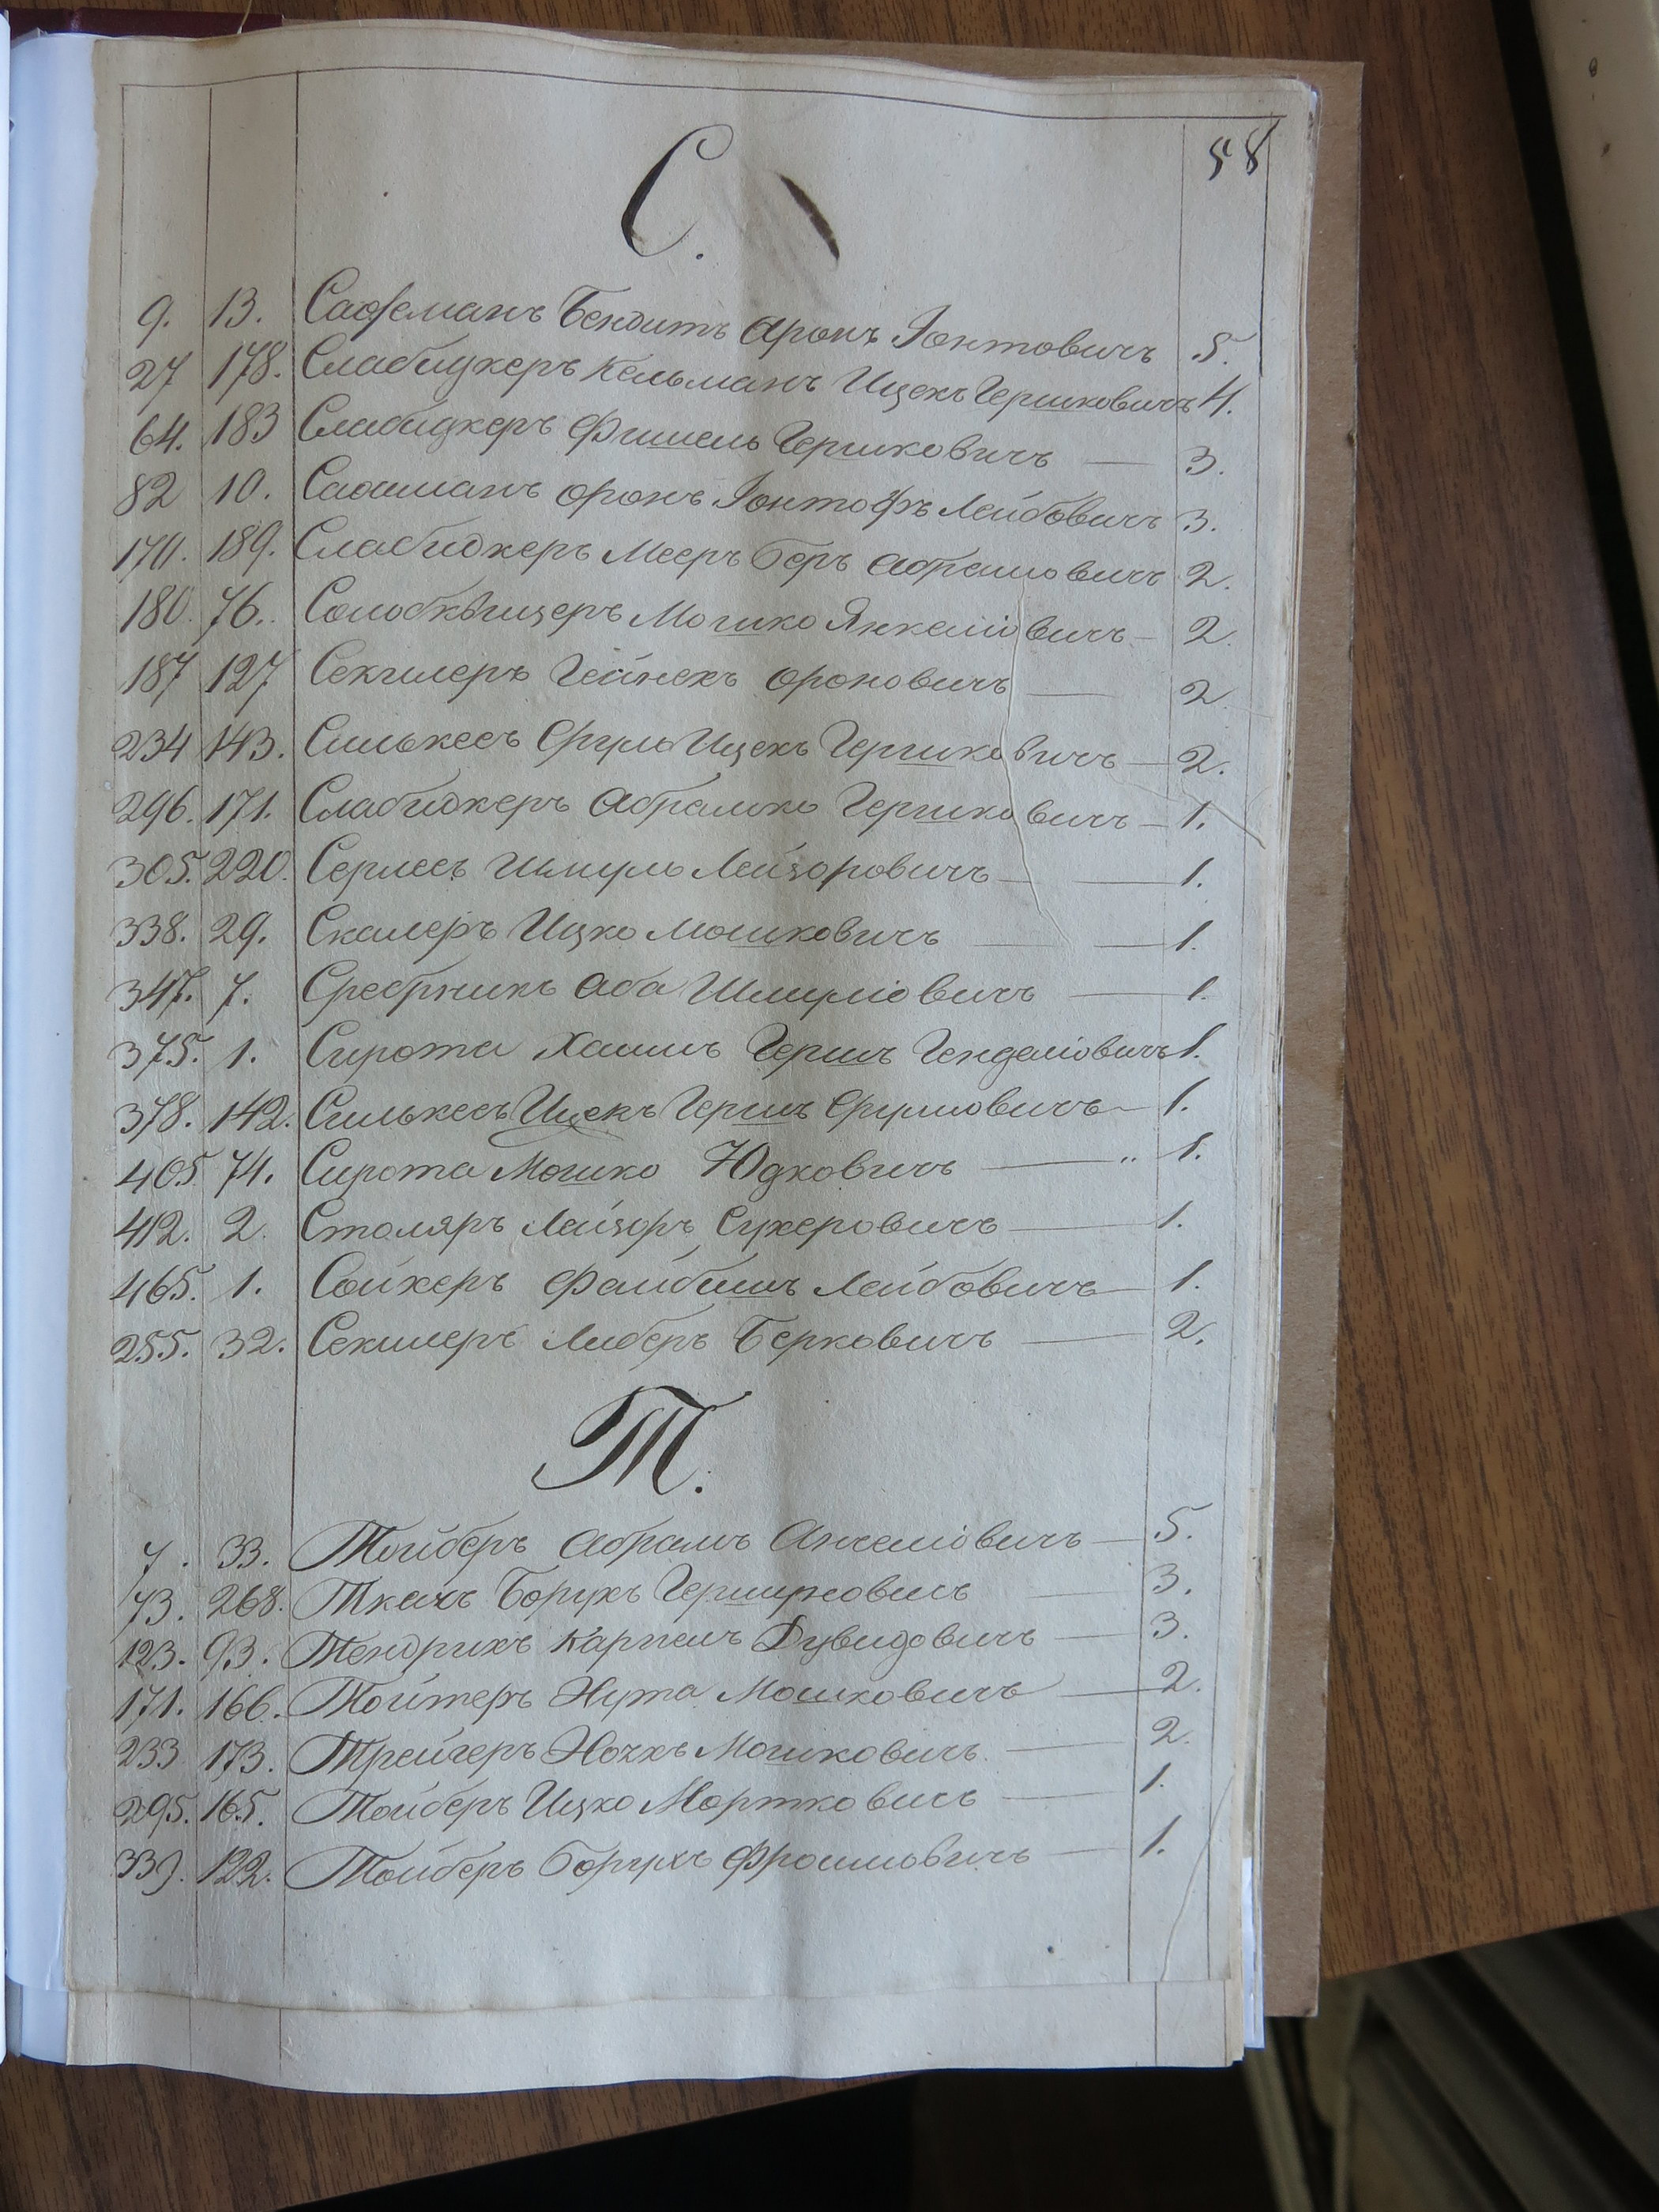 58
С.
9. 13. Сафеманъ Бендитъ Аронъ Іонтовичъ 5.
27 178. Слабидкеръ Кельманъ Ицекъ Гершковичъ 4.
64. 183 Слабидкеръ Фишель Гершковичъ — 3.
82 10. Аронъ Іонтофъ Лейбовичъ 3.
170. 189. Слабидкеръ Мееръ Беръ Абрамовичъ 2.
180. 76. Мошко Янкеліовичъ — 2.
187 127 Секилеръ Гейнехъ Ароновичъ — 2
234 143. Силькесъ Сруль Ицекъ Гершковичъ — 2.
296. 171. Слабидкеръ Абрамко Гершковичъ — 1.
305. 220. Серлесъ Шмуль Лейзоровичъ — — 1.
338. 29. Скалеръ Ицко Мошковичъ — — 1.
347. 7. Сребрникъ Аба Шмуліовичъ — 1.
375. 1. Сирота Хаимъ Гершъ Генделіовичъ 1.
378. 142. Силькесъ Ицекъ Гершъ Сруліовичъ — 1.
405 74. Сирота Мошко Юдковичъ — „ 1.
412. 2. Столяръ Лейзоръ Сухеровичъ — 1.
465. 1. Сойхеръ Файбишъ Лейбовичъ — 1.
255. 32. Секилеръ Либеръ Берковичъ — 2.
Т.
7. 33. Тойберъ Абрамъ Анчеліовичъ — 5.
73. 268. Ткачъ Борухъ — 3.
123. 93. Тендрихъ Карпелъ Дувидовичъ — 3.
171. 166. Тойтеръ Нута Мошковичъ — 2.
233 173. Трейгеръ Мошковичъ. — 2.
295. 165. Тойберъ Ицко Мортковичъ — 1.
339. 122. Тойберъ Борухъ Фроимовичъ — 1.